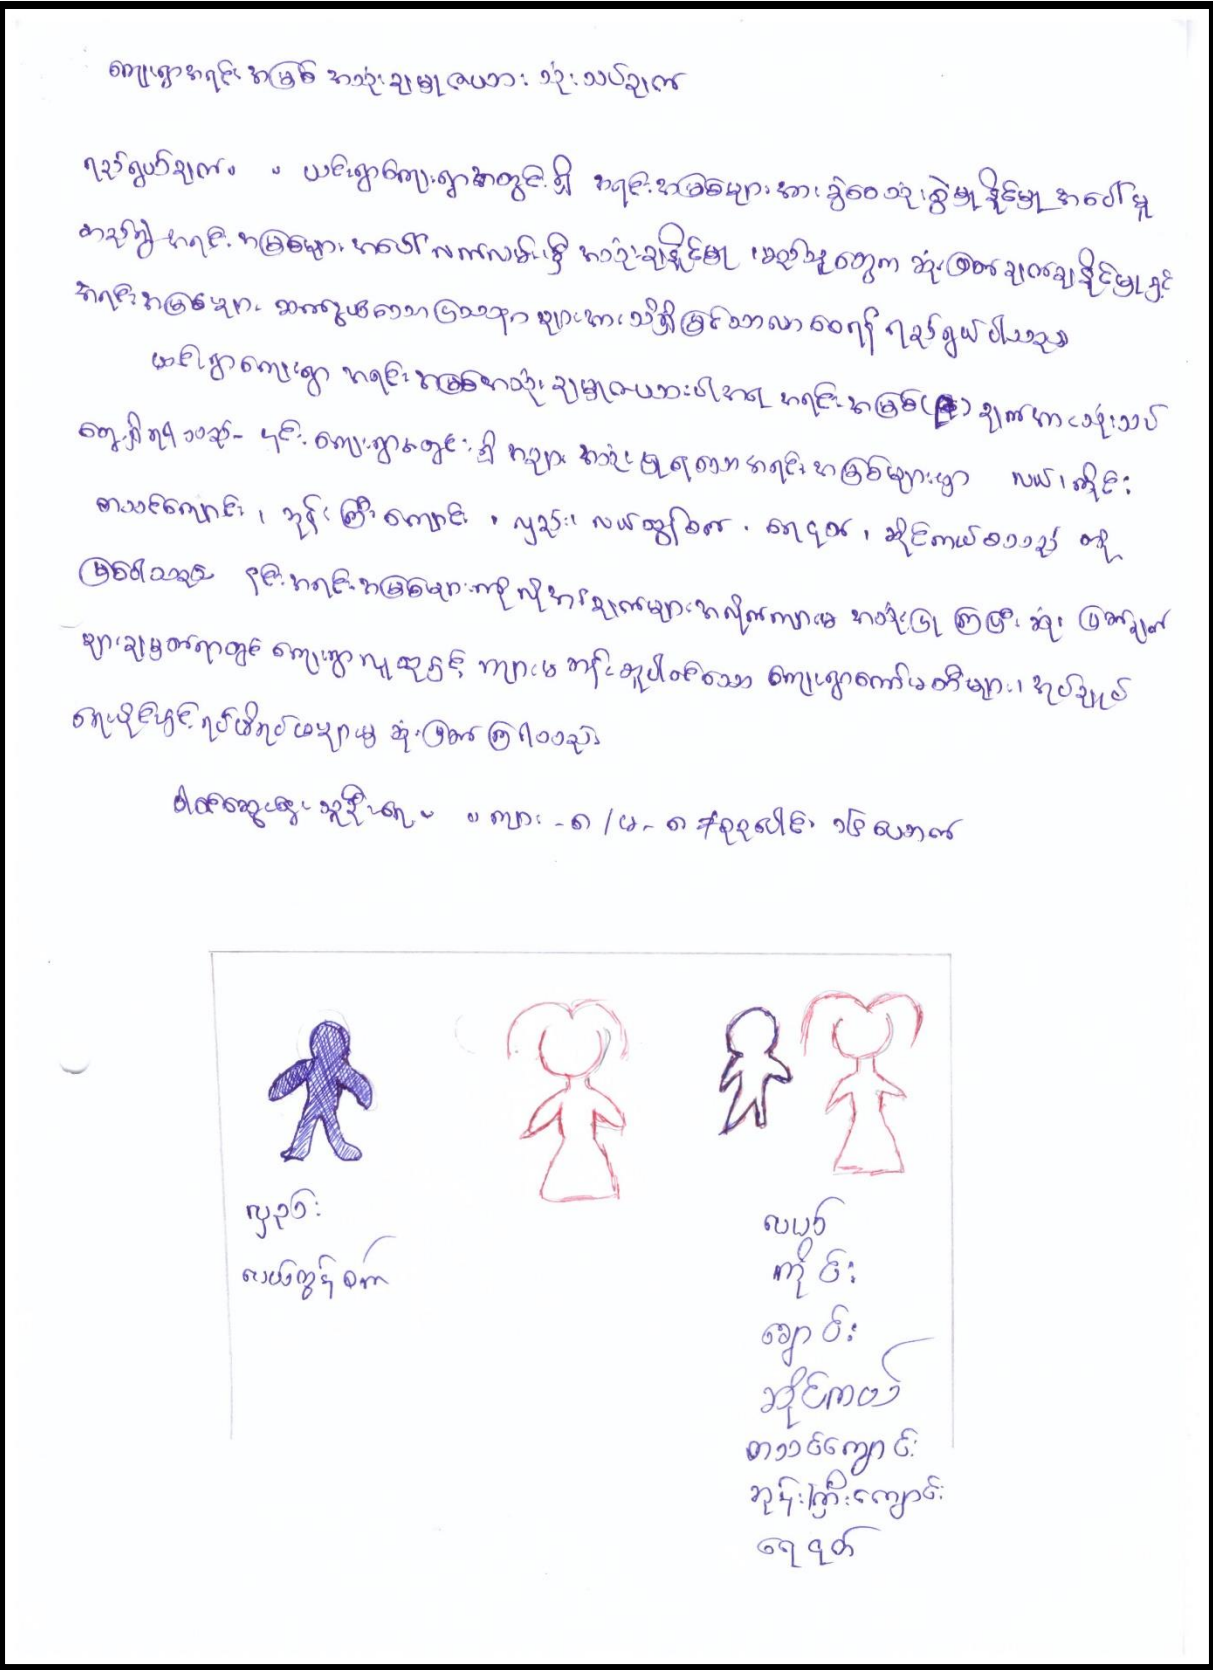 ကျေးရွာအရင်းအမြစ် အသုံးချမှုဇယား သုံးသပ်ချက်
ရည်ရွယ်ချက်။ ။ ယင်းရွာကျေးရွာအတွင်းရှိ အရင်းအမြစ်များအား ခွဲဝေသုံးစွဲမှုနိုင်မှု အပေါ်မူ
တည်၍ အရင်းအမြစ်များအပေါ် လက်လမ်းမှီ အသုံးချနိုင်မှု၊ မည်သူတွေက ဆုံးဖြတ်ချက်ချနိုင်မှုနှင့်
အရင်းအမြစ်များ ဆက်နွယ်သော ပြဿနာများအား သိရှိမြင်သာလာစေရန် ရည်ရွယ်ပါသည်။
ယင်းရွာကျေးရွာ အရင်းအမြစ်အသုံးချမှုဇယားပါအရ အရင်းအမြစ် ( ) ချက်အားသုံးသပ်
တွေ့ရှိရသည်- ၎င်းကျေးရွာအတွင်းရှိ အများအသုံးပြုရသော အရင်းအမြစ်များမှာ လယ်၊ ကိုင်း
စာသင်ကျောင်း၊ ဘုန်းကြီးကျောင်း၊ လှည်း၊ လယ်ထွန်စက်၊ ရေငုတ်၊ ဆိုင်ကယ်စသည် တို့
ဖြစ်ပါသည်။ ၎င်းအရင်းအမြစ်များကို လိုအပ်ချက်များအလိုက်ကျားမ အသုံးပြုကြပြီး ဆုံးဖြတ်ချက်
များချမှတ်ရာတွင် ကျေးရွာလူထုနှင့် ကျားမ အတူပါဝင်သော ကျေးရွာကော်မတီများ၊ အုပ်ချုပ်
ရေးပိုင်းနှင့် ရပ်မိရပ်ဖများမှ ဆုံးဖြတ်ကြပါသည်။
ပါဝင်ဆွေးနွေးသူဦးရေ - ။ ကျား -၈ /မ- ၈ စုစုပေါင်း ၁၆ ယောက်
လှည်း
လယ်ထွန်စက်
လယ်
ကိုင်း
ချောင်း
ဆိုင်ကယ်
စာသင်ကျောင်း
ဘုန်းကြီးကျောင်း
ရေငုတ်